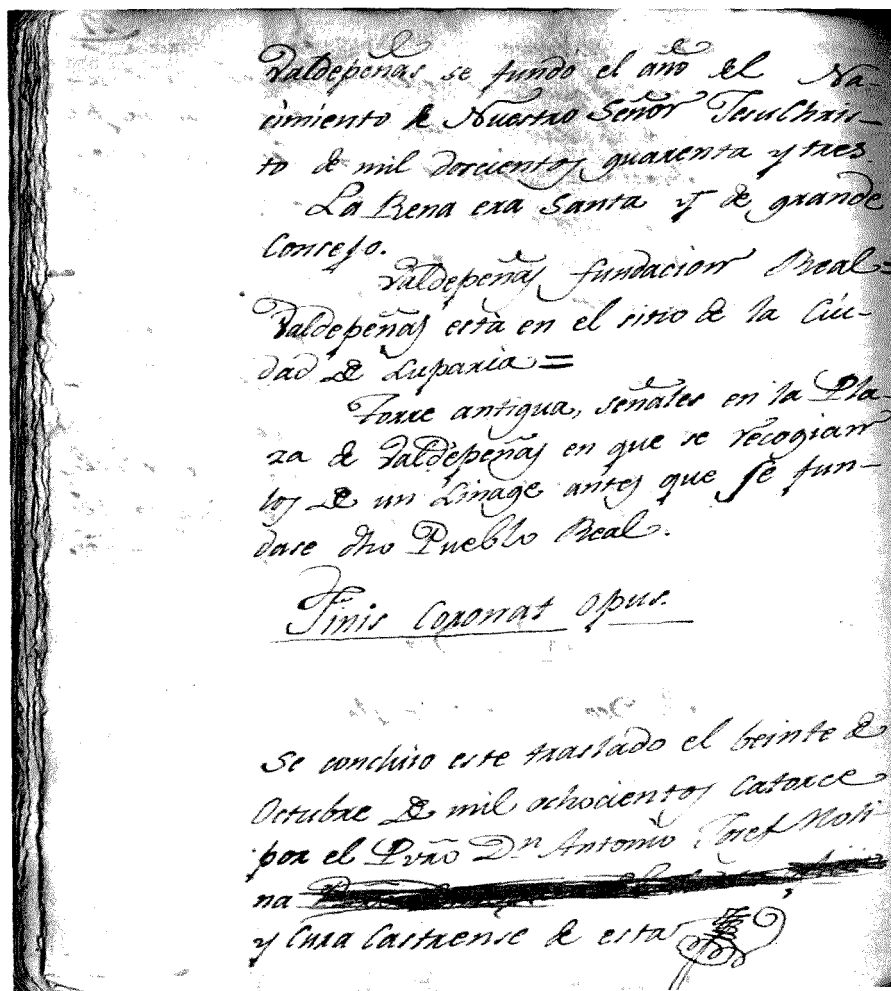 Valdepeñas se fundó el año del Na-
cimiento de Nuestro Señor Jesu Chris-
to de mil doscientos quarenta y tres.
La Rena era Santa y de grande
Consejo.
Valdepeñas fundacion Real=
Valdepeñas està en el sitio de la Ciu-
dad de Luparia=
Torre antigua, señales en la Pla-
za de Valdepeñas en que se recogian
los de un Linage antes que se fun-
dase dho Pueblo Real.
Finis Coronat Opus.
Se concluio este traslado el beinte de
Octubre de mil ochocientos Catorce
por el Prño Dn Antonio Josef Moli-
na
y Cura Castrense de esta